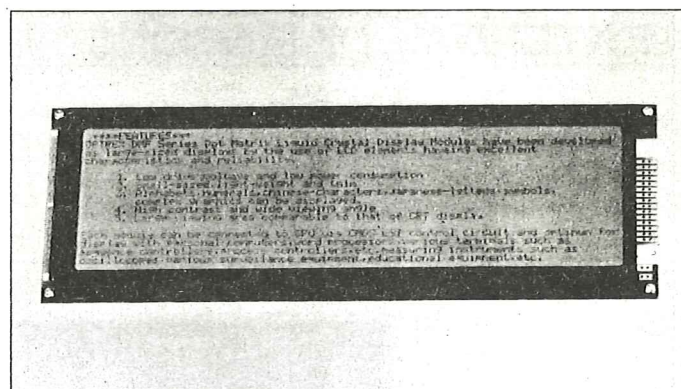 ****FEATURES****
OPTREX DMF Series Dot Matrix Liquid Crystal Display Modules have been developed
as large-sized displays by the use of LCD elements having excellent
characteristics and reliability.
1. Low drive voltage and low power consumption
2. light-weight and thin.
3. Alphabet, numerals, chinese-characters, Japanese-letters, symbols,
complex graphics can be displayed.
4. High contrast and wide viewing angle
5. Large viewing area comparable to that of CRT display.
Each module can be connected to CPU via CMOS LSI control circuit and optimum for
display with personal computers, word processors, various terminals such as
sequence controllers, controllers, etc, measuring instruments such as
various surveilance equipment, educational equipment, etc.